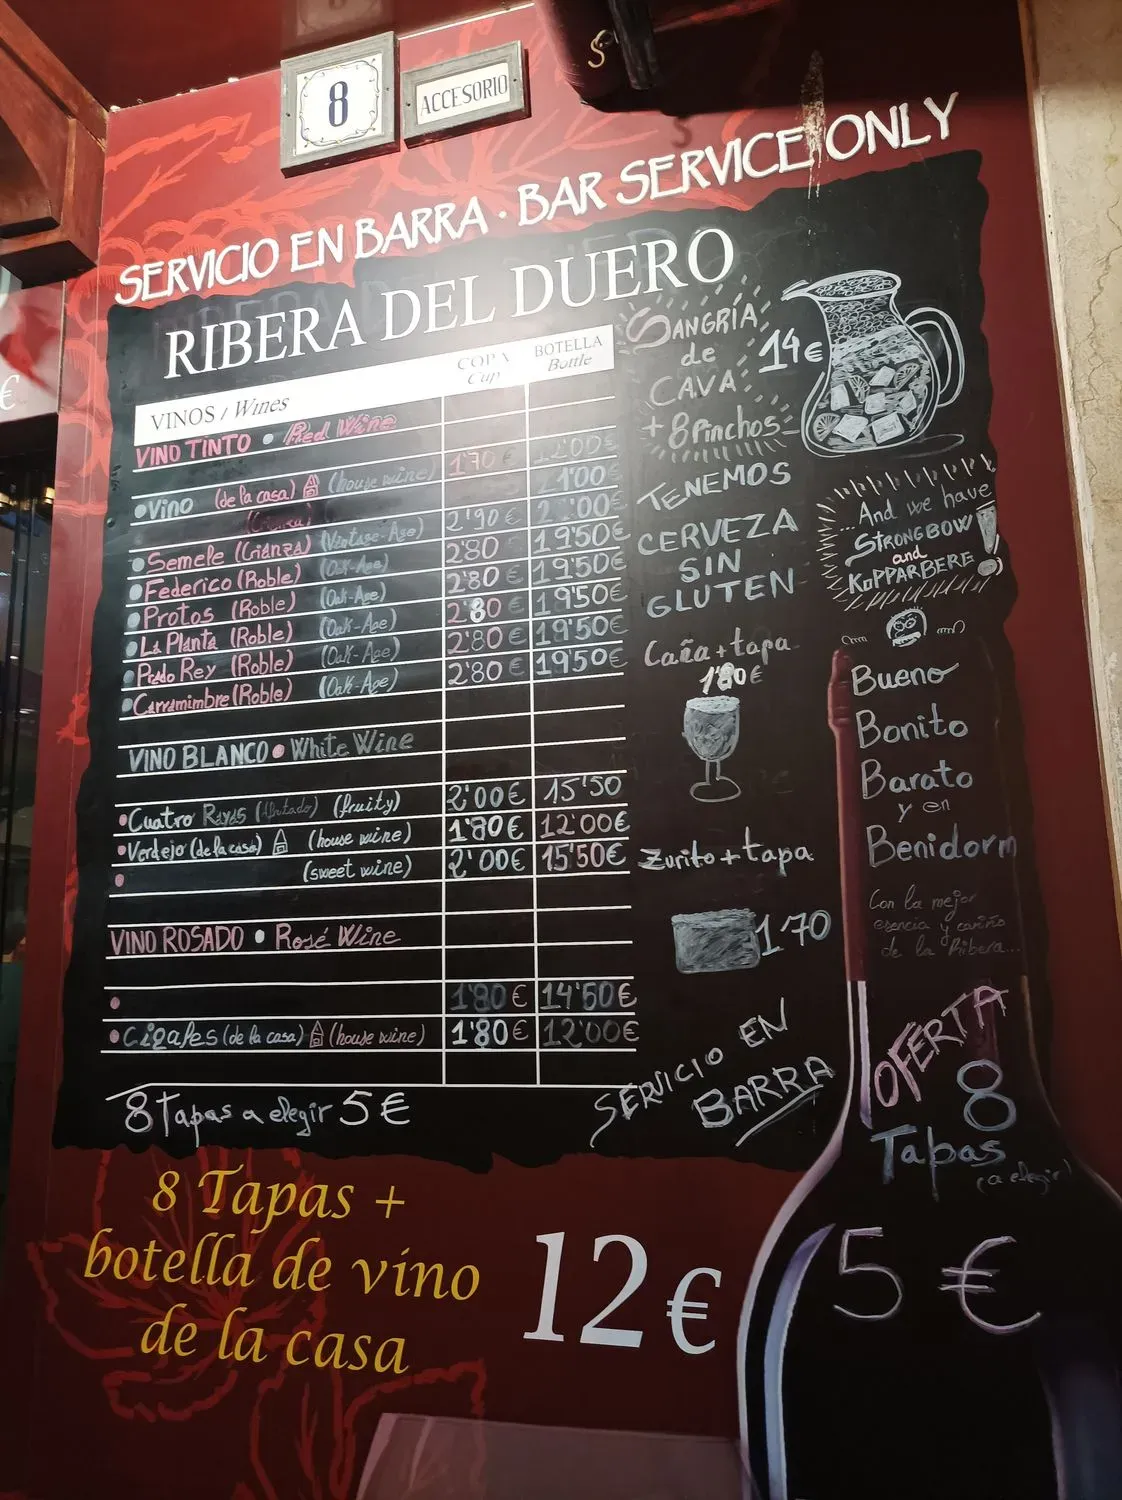 8
ACCESORIO
SERVICIO EN BARRA · BAR SERVICE ONLY
RIBERA DEL DUERO
VINOS / Wines COPA Cup BOTELLA Bottle
VINO TINTO • Red Wine
•Vino (de la casa) (house wine) 1'70 € 12'00€
•Semele (Crianza) (Vintage-Age) 2'90 €
•Federico (Roble) (Oak-Age) 2'80 19'50€
•Protos (Roble) (Oak-Age) 2'80 € 19'50€
•La Planta (Roble) (Oak-Age) 2'80 € 19'50€
•Prado Rey (Roble) (Oak-Age) 2'80 € 19'50€
•Carramimbre (Roble) (Oak-Age) 2'80 € 19'50€
VINO BLANCO • White Wine
•Cuatro Rayas (Afrutado) (fruity) 2'00€ 15'50
•Verdejo (de la casa) (house wine) 1'80€ 12'00€
• (sweet wine) 2'00€ 15'50€
VINO ROSADO • Rosé Wine
• 1'80 € 14'50€
•Cigales (de la casa) (house wine) 1'80€ 12'00€
8 Tapas a elegir 5 €
SANGRÍA
de
CAVA
+ 8 Pinchos
14€
TENEMOS
CERVEZA
SIN
GLUTEN
Caña + tapa
1'80€
Zurito + tapa
1'70
SERVICIO EN
BARRA
...And we have
STRONGBOW
and
KOPPARBERG !
Bueno
Bonito
Barato
y en
Benidorm
Con la mejor
esencia y cariño
de la Ribera...
OFERTA
8
Tapas
(a elegir)
5 €
8 Tapas +
botella de vino
de la casa
12€